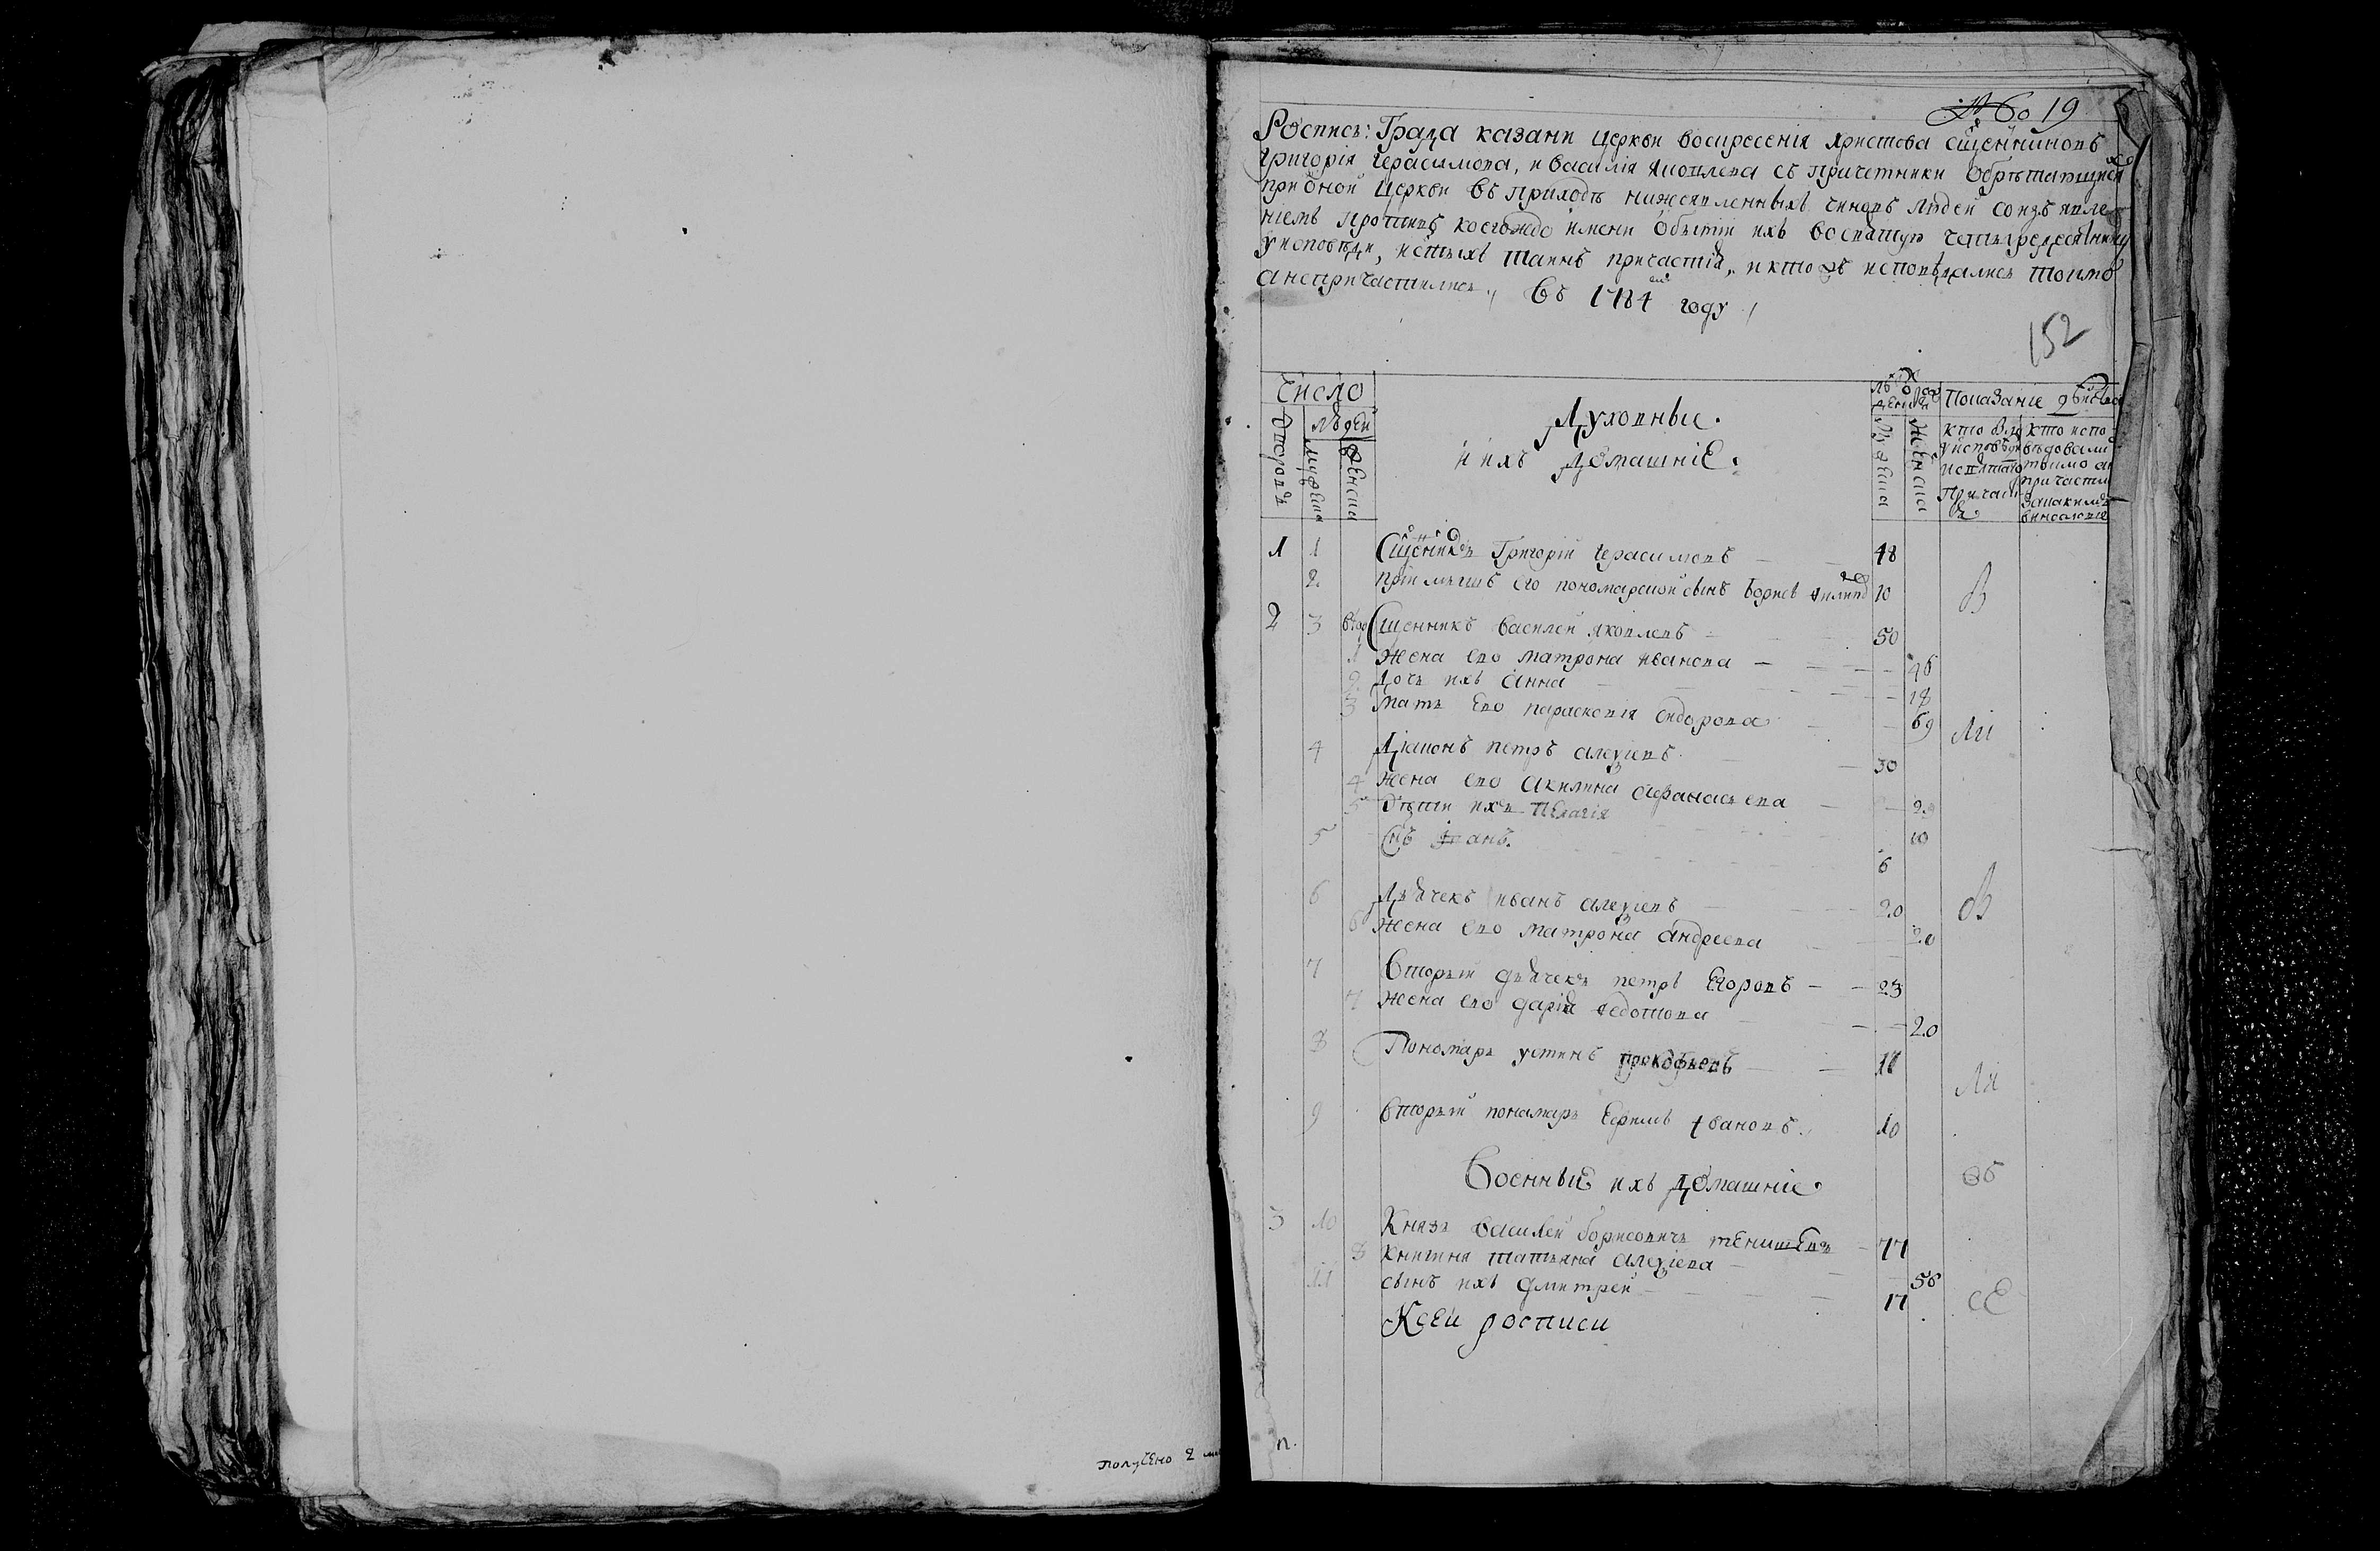 № 60 19
Роспись: Града казани церкви воскресения христова сщенниковъ
григория герасимова, и василия яковлева съ причетники обретающихся
при оной церкви въ приходе нижеявленныхъ чиновъ людей со изъявле
ниемъ противъ коегождо имени о бытии ихъ во святую четыредесятницу
у исповеди, и стыхъ таинъ причастия, и кто исповедались токмо
а непричастились, Въ 1784 году
152
Число
дворовъ
людей
мужеска
женска
Духовные
и ихъ домашние
мужеска
женска
Показание действа
кто былъ у исповеди и
кто исповедовались токмо а
1 1 Сщенникъ Григорий герасимовъ — 48
2 приимышъ его пономарской сынъ борисъ 10
В
2 3 Сщенникъ василей яковлевъ — 50
1 Жена ево матрона иванова — 46
2 Дочь ихъ анна — 18
3 Мать ево парасковия сидорова — 69
Ли
4 Диаконъ петръ алеѯиевъ — 30
4 Жена ево акилина афанасьева — 29
5 Дети ихъ пелагия 10
5 Снъ иванъ. 6
6 Дьячекъ иванъ алеѯиевъ — 20
В
6 Жена ево матрона андреева 20
7 Вторый дьячекъ петръ егоровъ — 23
7 Жена ево дария федотова — 20
8 Пономарь устинъ прокофьевъ — 18
Ли
9 Вторый пономарь ефимъ ивановъ. 10
Военные ихъ домашние
3 10 Князь василей борисовичь тенишевъ — 77
8 Княгиня татьяна алеѯиева — 58
11 сынъ ихъ дмитрей — 17
СЕ
К сей росписи
получено 2